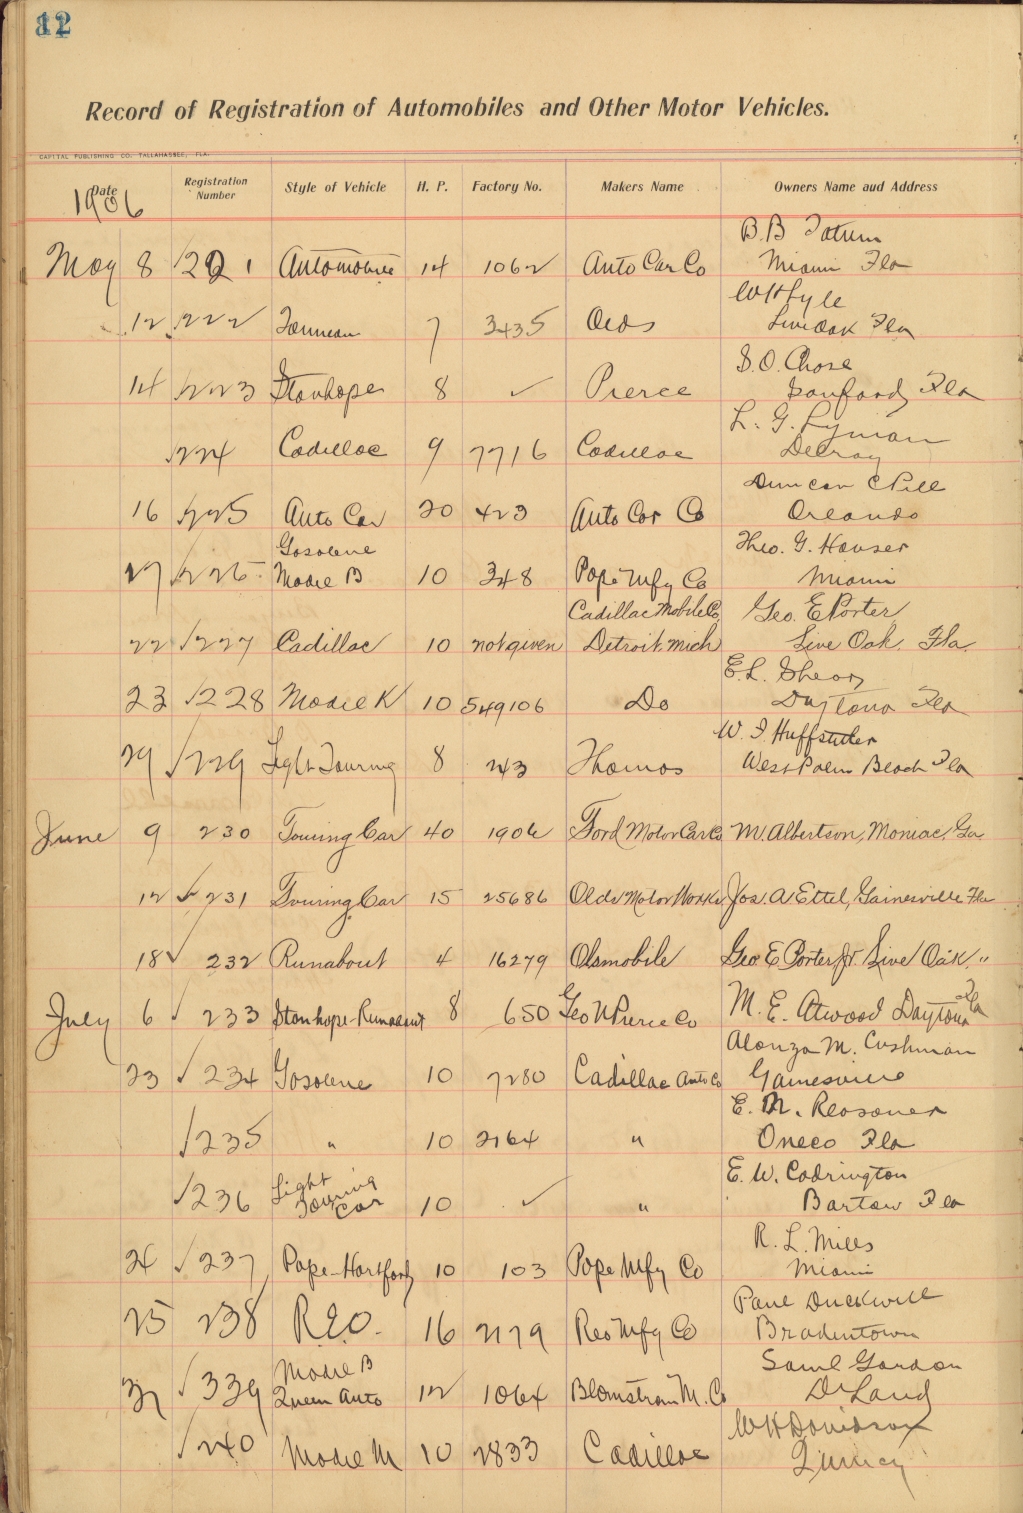 12
Record of Registration of Automobiles and Other Motor Vehicles.
CAPITAL PUBLISHING CO. TALLAHASSEE, FLA.
Date Registration Number Style of Vehicle H. P. Factory No. Makers Name Owners Name aud Address
1906
B. B Tatum
May 8 221 Automobile 14 1062 Auto Car Co Miami Fla
W H Lyle
12 222 Tonneau 7 3435 Olds Live Oak Fla
S. O. Chase
14 223 Stanhope 8 ✓ Pierce Sanford, Fla
L. G. Lyman
224 Cadillac 9 7716 Cadillac Delray
Duncan C Pell
16 225 Auto Car 20 423 Auto Car Co Orlando
Gosolene Theo. G. Houser
17 226 Model B 10 348 Pope Mfg Co Miami
Cadillac Mobile Co, Geo. E Porter
22 227 Cadillac 10 not given Detroit Mich Live Oak, Fla.
E. L. Shear
23 228 Model K 10 549106 Do Daytona Fla
W. I. Huffstutler
29 229 Light Touring 8 243 Thomas West Palm Beach Fla
June 9 230 Touring Car 40 1906 Ford Motor Car Co M. Albertson, Moniac, Ga.
12 ✓ 231 Touring Car 15 25686 Olds Motor Works Jos. A Ettel, Gainesville Fla
18 ✓ 232 Runabout 4 16279 Olsmobile Geo. E Porter Jr. Live Oak, "
July 6 ✓ 233 Stanhope-Runabout 8 650 Geo N Pierce Co M. E. Atwood Daytona Fla
Alonzo M. Cushman
23 ✓ 234 Gosolene 10 7280 Cadillac Auto Co Gainesville
E. N. Reasoner
✓ 235 " 10 2164 " Oneco Fla
Light E. W. Codrington
✓ 236 Touring Car 10 ✓ " Bartow Fla
R. L. Mills
24 ✓ 237 Pope-Hartford 10 103 Pope Mfg Co Miami
Paul Duckwill
25 238 REO. 16 2179 Reo Mfg Co Bradentown
Model B Saml Gordon
31 ✓ 339 Queen Auto 12 1064 Blomstrom M. Co DeLand
W H Davidson
✓ 240 Model M 10 2833 Cadillac Quincy